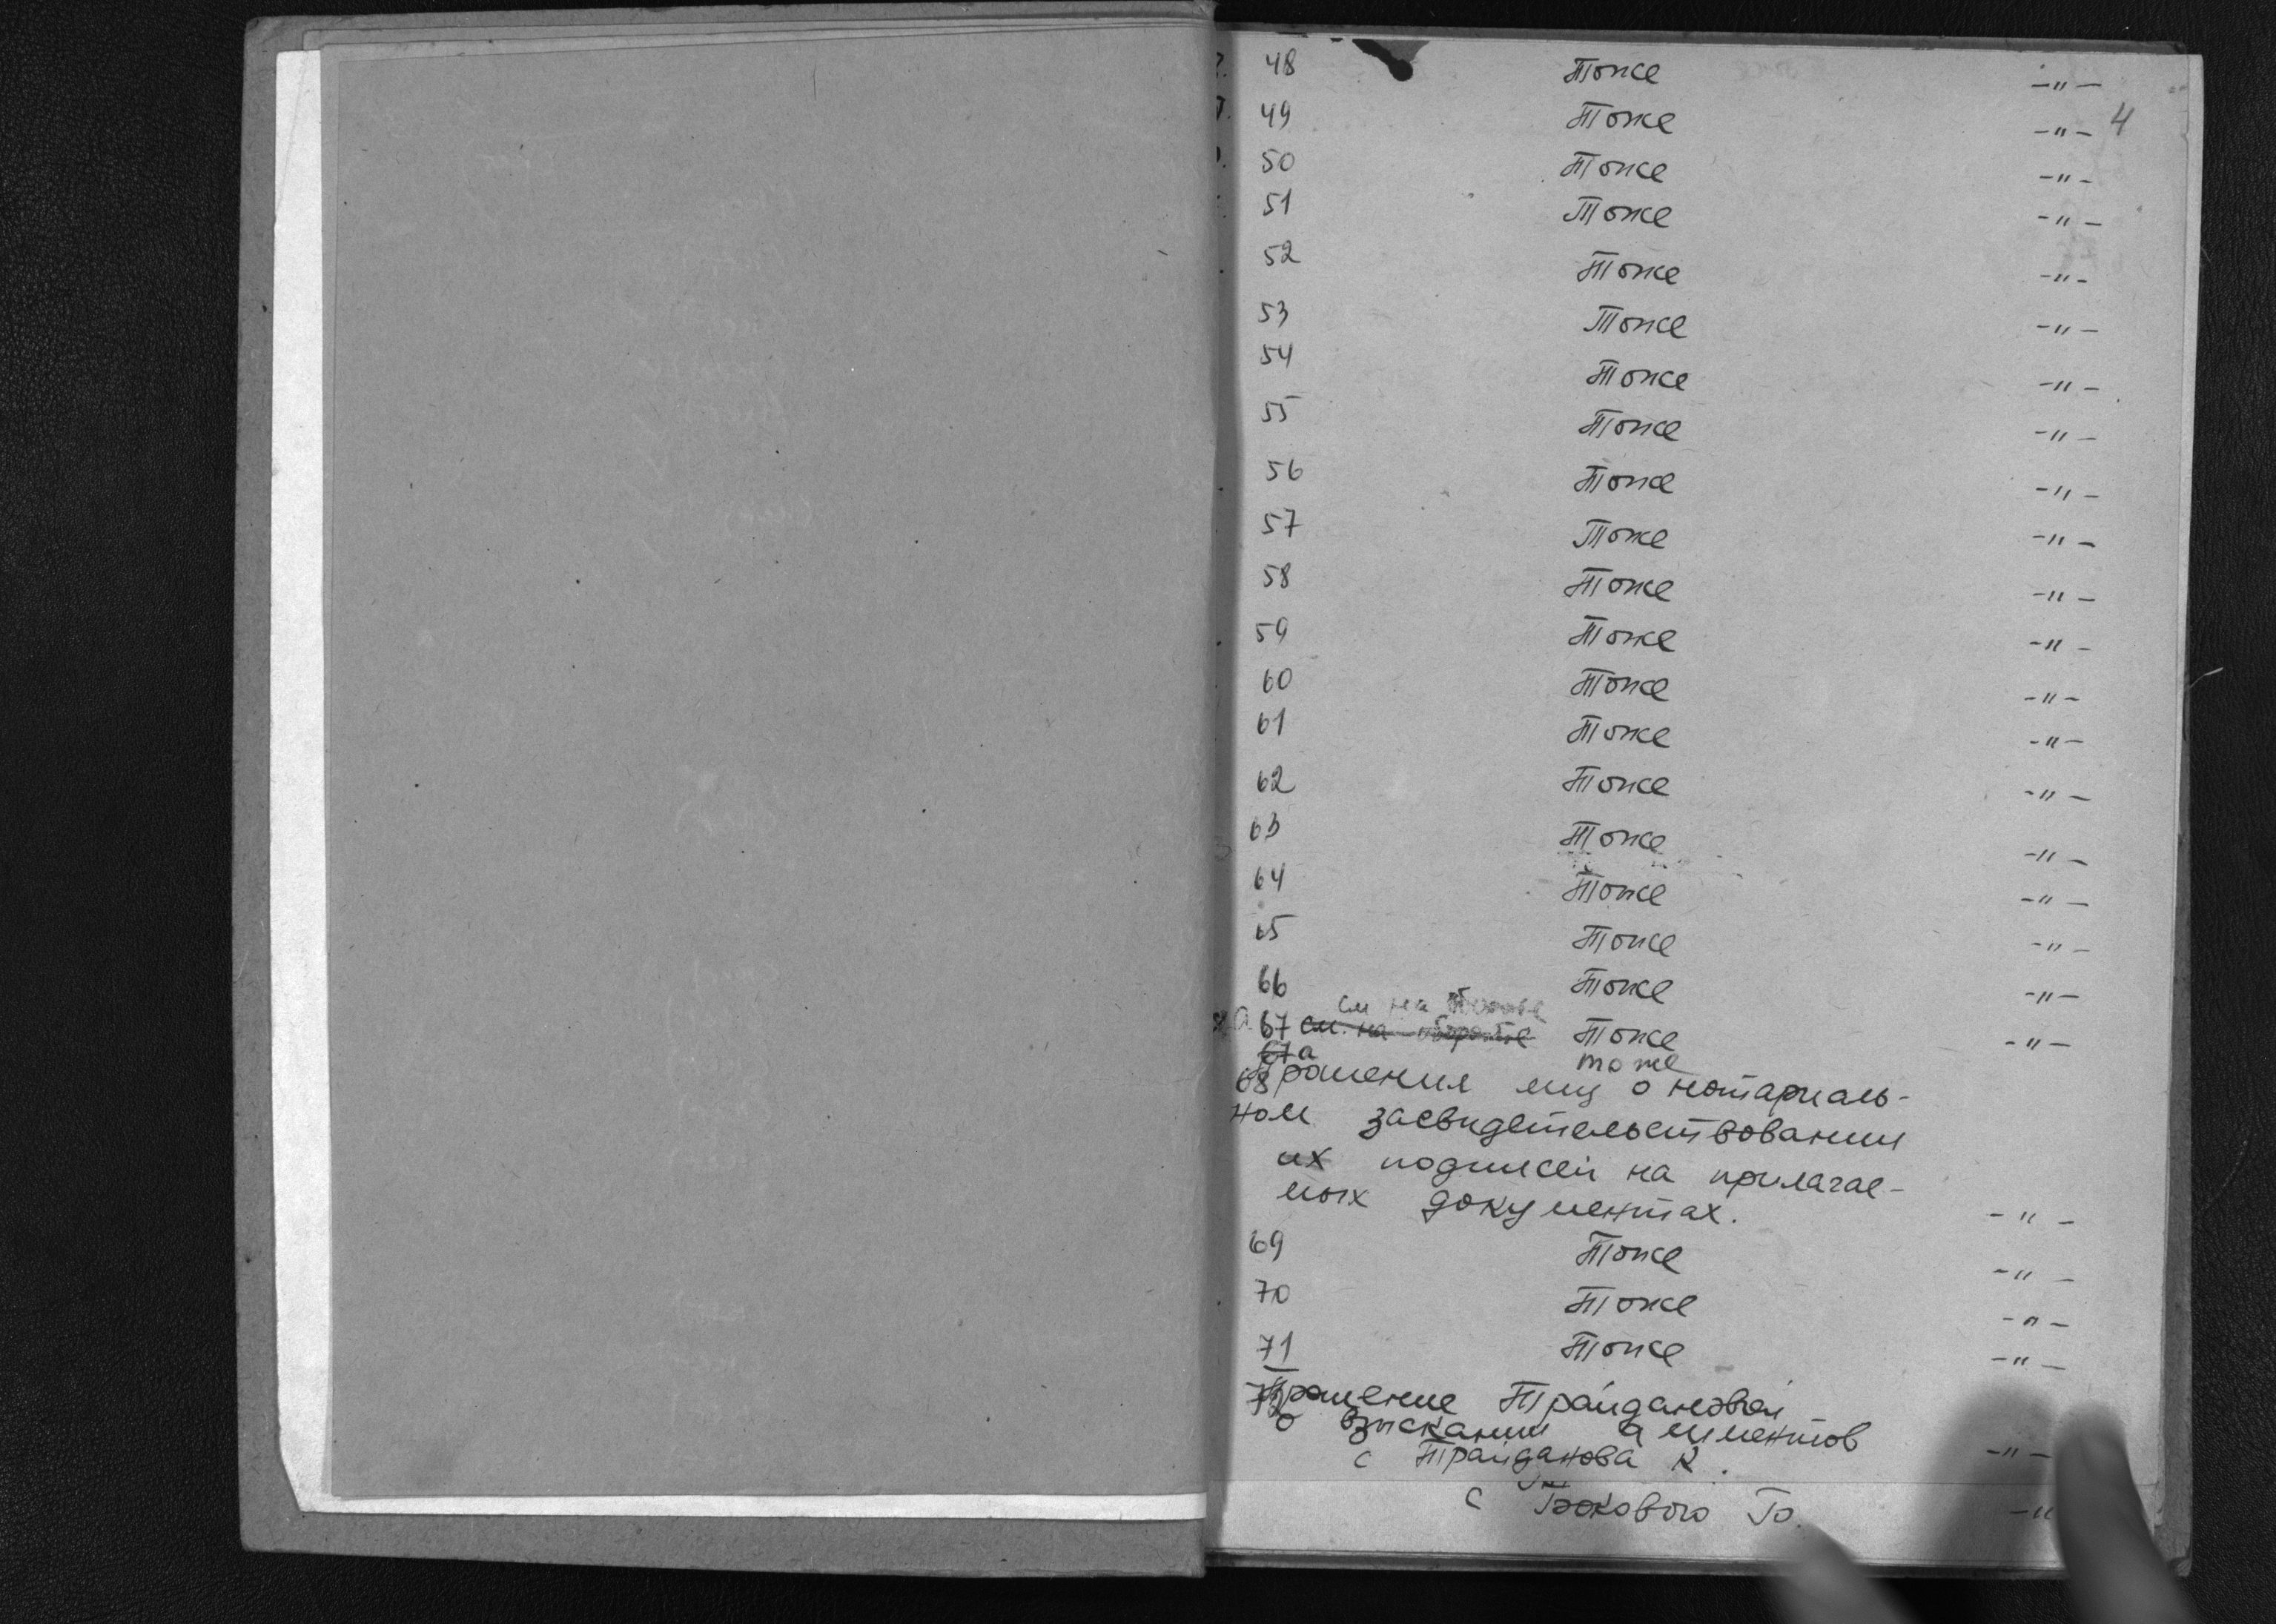 48 Тоже -"-
4
49 Тоже -"-
50 Тоже -"-
51 Тоже -"-
52 Тоже -"-
53 Тоже -"-
54 Тоже -"-
55 Тоже -"-
56 Тоже -"-
57 Тоже -"-
58 Тоже -"-
59 Тоже -"-
60 Тоже -"-
61 Тоже -"-
62 Тоже -"-
63 Тоже -"-
64 Тоже -"-
65 Тоже -"-
66 Тоже -"-
см на
67 см. на обороте Тоже -"-
67а тоже
68 Прошения лиц о нотариаль-
ном засвидетельствовании
их подписей на прилагае-
мых документах. -"-
69 Тоже -"-
70 Тоже -"-
71 Тоже -"-
72 Прошение Трайдановой
о взыскании алиментов
с Трайданова К. -"-
с -"